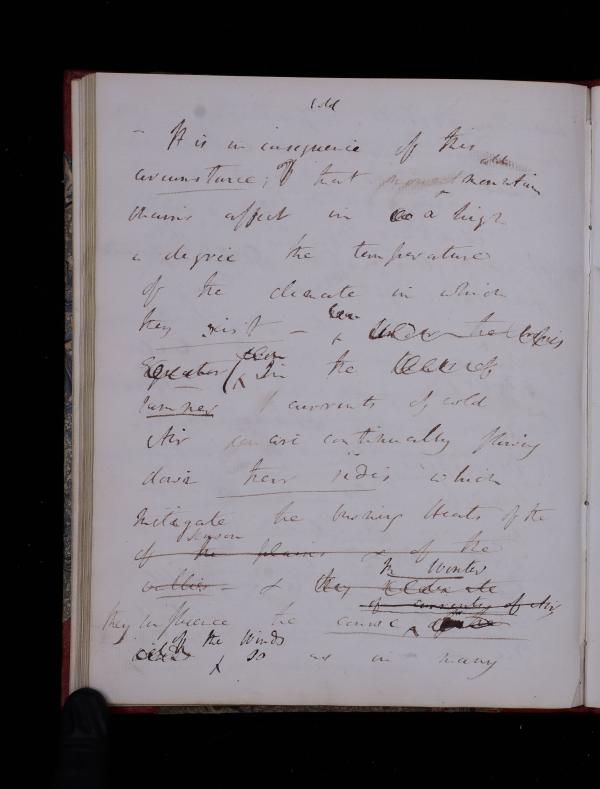 - It is in consequence of this
circumstance; that mountain
chains affect in a high
a degree the temperature
of the climate in which
they exist -
Equator In the
summer currents of cold
Air are continually flowing
down their sides which
mitigate the burning Heats of the
season
of the plains & of the
In Winter
vallies - & they
of currents of Air
they influence the course
of the Winds
so as in many